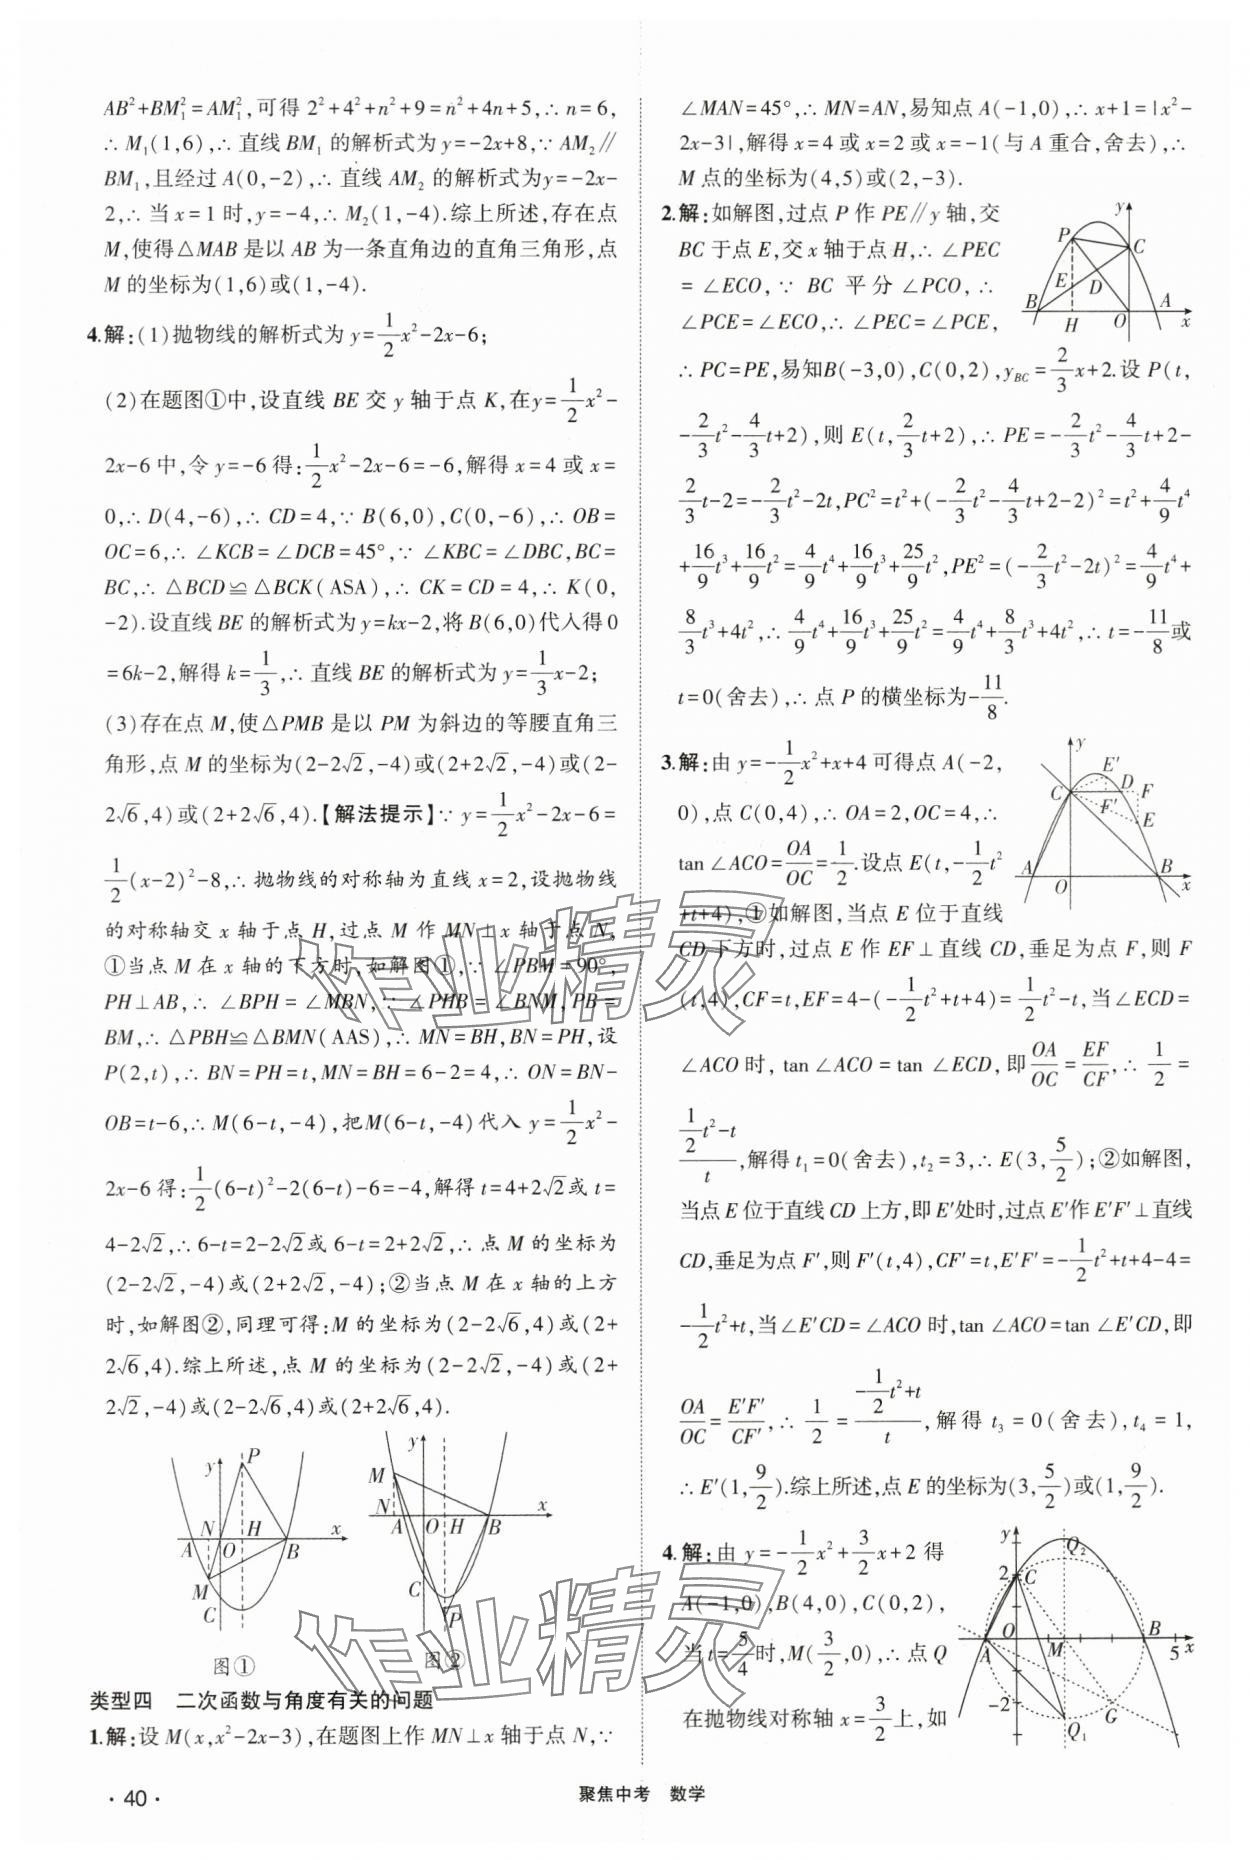 AB²+BM₁²=AM₁²,可得 2²+4²+n²+9=n²+4n+5,∴n=6,
∴M₁(1,6),∴直线 BM₁ 的解析式为 y=-2x+8,∵AM₂∥
BM₁,且经过 A(0,-2),∴直线 AM₂ 的解析式为y=-2x-
2,∴当 x=1 时,y=-4,∴M₂(1,-4).综上所述,存在点
M,使得△MAB 是以 AB 为一条直角边的直角三角形,点
M 的坐标为(1,6)或(1,-4).
4.解:(1)抛物线的解析式为 y=1/2x²-2x-6;
(2)在题图①中,设直线 BE 交 y 轴于点 K,在y=1/2x²-
2x-6 中,令 y=-6 得:1/2x²-2x-6=-6,解得 x=4 或 x=
0,∴D(4,-6),∴CD=4,∵B(6,0),C(0,-6),∴OB=
OC=6,∴∠KCB=∠DCB=45°,∵∠KBC=∠DBC,BC=
BC,∴△BCD≌△BCK(ASA),∴CK=CD=4,∴K(0,
-2).设直线 BE 的解析式为 y=kx-2,将 B(6,0)代入得 0
=6k-2,解得 k=1/3,∴直线 BE 的解析式为 y=1/3x-2;
(3)存在点 M,使△PMB 是以 PM 为斜边的等腰直角三
角形,点 M 的坐标为(2-2√2,-4)或(2+2√2,-4)或(2-
2√6,4)或(2+2√6,4).【解法提示】∵y=1/2x²-2x-6=
1/2(x-2)²-8,∴抛物线的对称轴为直线 x=2,设抛物线
的对称轴交 x 轴于点 H,过点 M 作 MN⊥x 轴于点 N,
①当点 M 在 x 轴的下方时,如解图①,∵∠PBM=90°,
PH⊥AB,∴∠BPH=∠MBN,∵∠PHB=∠BNM,PB=
BM,∴△PBH≌△BMN(AAS),∴MN=BH,BN=PH,设
P(2,t),∴BN=PH=t,MN=BH=6-2=4,∴ON=BN-
OB=t-6,∴M(6-t,-4),把M(6-t,-4)代入 y=1/2x²-
2x-6 得:1/2(6-t)²-2(6-t)-6=-4,解得 t=4+2√2或 t=
4-2√2,∴6-t=2-2√2或 6-t=2+2√2,∴点 M 的坐标为
(2-2√2,-4)或(2+2√2,-4);②当点 M 在 x 轴的上方
时,如解图②,同理可得:M 的坐标为(2-2√6,4)或(2+
2√6,4).综上所述,点 M 的坐标为(2-2√2,-4)或(2+
2√2,-4)或(2-2√6,4)或(2+2√6,4).
y P N H x A O B M C
图①
y M N A O H B x C P
图②
类型四 二次函数与角度有关的问题
1.解:设 M(x,x²-2x-3),在题图上作 MN⊥x 轴于点 N,∵
∠MAN=45°,∴MN=AN,易知点 A(-1,0),∴x+1=|x²-
2x-3|,解得 x=4 或 x=2 或 x=-1(与 A 重合,舍去),∴
M 点的坐标为(4,5)或(2,-3).
2.解:如解图,过点 P 作 PE∥y 轴,交
BC 于点 E,交 x 轴于点 H,∴∠PEC
=∠ECO,∵BC 平分∠PCO,∴
∠PCE=∠ECO,∴∠PEC=∠PCE,
y P C E D B H O A x
∴PC=PE,易知B(-3,0),C(0,2),y_BC=2/3x+2.设 P(t,
-2/3t²-4/3t+2),则 E(t,2/3t+2),∴PE=-2/3t²-4/3t+2-
2/3t-2=-2/3t²-2t,PC²=t²+(-2/3t²-4/3t+2-2)²=t²+4/9t⁴
+16/9t³+16/9t²=4/9t⁴+16/9t³+25/9t²,PE²=(-2/3t²-2t)²=4/9t⁴+
8/3t³+4t²,∴4/9t⁴+16/9t³+25/9t²=4/9t⁴+8/3t³+4t²,∴t=-11/8或
t=0(舍去),∴点 P 的横坐标为-11/8.
3.解:由 y=-1/2x²+x+4 可得点 A(-2,
0),点 C(0,4),∴OA=2,OC=4,∴
tan∠ACO=OA/OC=1/2.设点 E(t,-1/2t²
+t+4),①如解图,当点 E 位于直线
y E′ C D F F′ E A O B x
CD 下方时,过点 E 作 EF⊥直线 CD,垂足为点 F,则 F
(t,4),CF=t,EF=4-(-1/2t²+t+4)=1/2t²-t,当∠ECD=
∠ACO 时,tan∠ACO=tan∠ECD,即OA/OC=EF/CF,∴1/2=
(1/2t²-t)/t,解得 t₁=0(舍去),t₂=3,∴E(3,5/2);②如解图,
当点 E 位于直线 CD 上方,即 E′处时,过点 E′作 E′F′⊥直线
CD,垂足为点 F′,则 F′(t,4),CF′=t,E′F′=-1/2t²+t+4-4=
-1/2t²+t,当∠E′CD=∠ACO 时,tan∠ACO=tan∠E′CD,即
OA/OC=E′F′/CF′,∴1/2=(-1/2t²+t)/t,解得 t₃=0(舍去),t₄=1,
∴E′(1,9/2).综上所述,点 E 的坐标为(3,5/2)或(1,9/2).
4.解:由 y=-1/2x²+3/2x+2 得
A(-1,0),B(4,0),C(0,2),
当t=5/4时,M(3/2,0),∴点 Q
在抛物线对称轴 x=3/2上,如
y Q₂ 2 C O B A M 5 x -2 G Q₁
· 40 ·
聚焦中考 数学
作业精灵
作业精灵